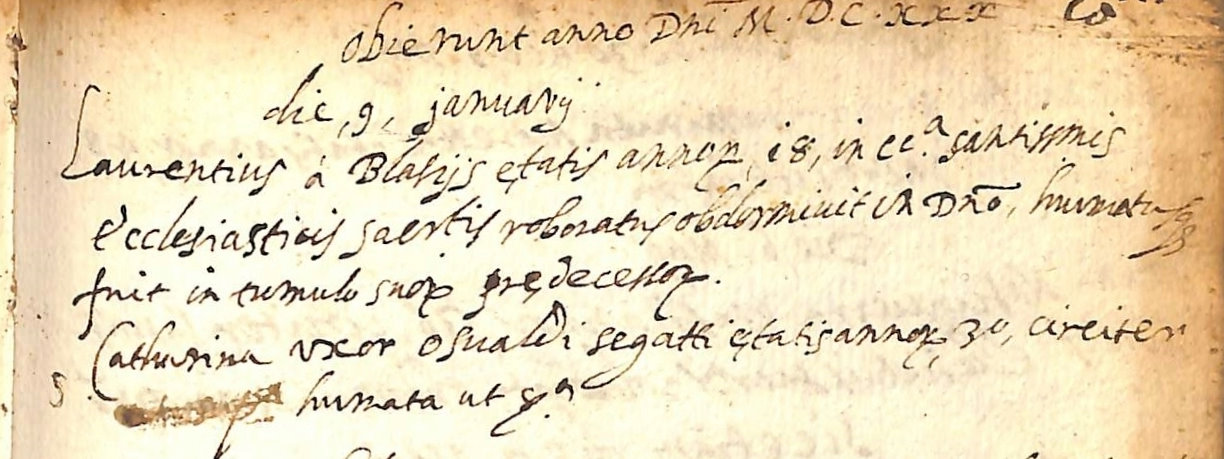 obierunt anno Dnī M. D. C. xxx
die, 9, januarij
Laurentius à Blasijs ętatis annoꝝ, i8, in cc.ª santissmis
Ecclesiasticis sacrtis roboratus obdormiuit in Dnō, humatus
fuit in tumulo suoꝝ prędecessoꝝ.
Catharina vxor osualdi segatti ętatis annoꝝ, 30, circiter
humata ut sª